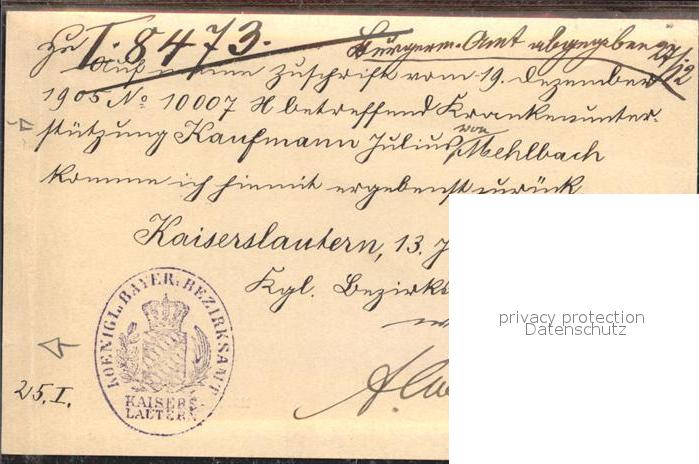 Zu I. 8473. Bürgerm.-Amt abgegeben 27/12
Auf meine Zuschrift vom 19. Dezember
1905 No 10007 H betreffend Krankenunter-
stützung Kaufmann Julius von Mehlbach
komme ich hiemit ergebenst zurück
Kaiserslautern, 13. J
Kgl. Bezirks
KOENIGL. BAYER. BEZIRKSAMT
KAISERS-
LAUTERN
25. I.
privacy protection
Datenschutz